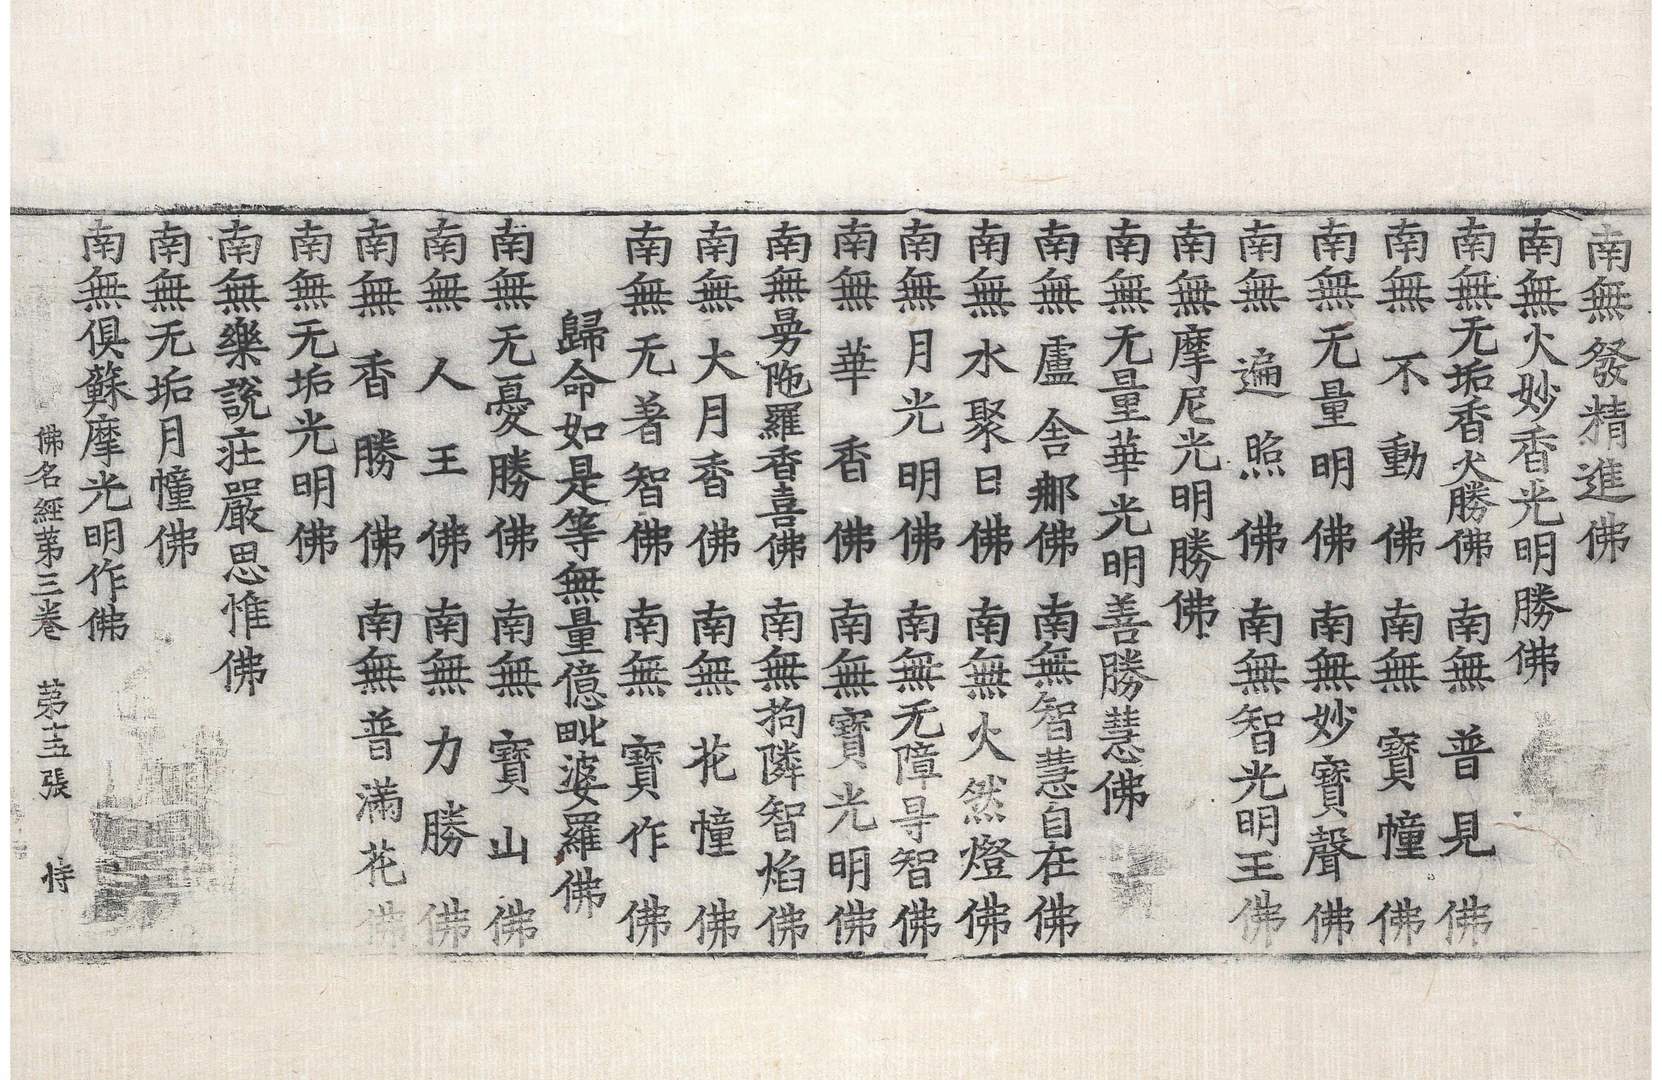 南無發精進佛
南無火妙香光明勝佛
南無无垢香火勝佛　南無普見佛
南無不動佛　南無寶幢佛
南無无量明佛　南無妙寶聲佛
南無遍照佛　南無智光明王佛
南無摩尼光明勝佛
南無无量華光明善勝慧佛
南無盧舍那佛　南無智慧自在佛
南無水聚日佛　南無火然燈佛
南無月光明佛　南無无障㝵智佛
南無華香佛　南無寶光明佛
南無曼陁羅香喜佛　南無拘隣智焰佛
南無大月香佛　南無花幢佛
南無无著智佛　南無寶作佛
歸命如是等無量億毗婆羅佛
南無无憂勝佛　南無寶山佛
南無人王佛　南無力勝佛
南無香勝佛　南無普滿花佛
南無无垢光明佛
南無樂說莊嚴思惟佛
南無无垢月幢佛
南無俱蘇摩光明作佛
佛名經第三卷　第十五張　恃